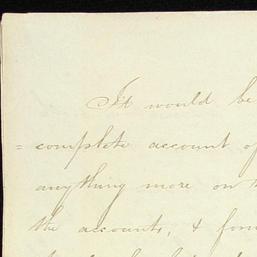 It would be
= complete account of
anything more on
the accounts, &